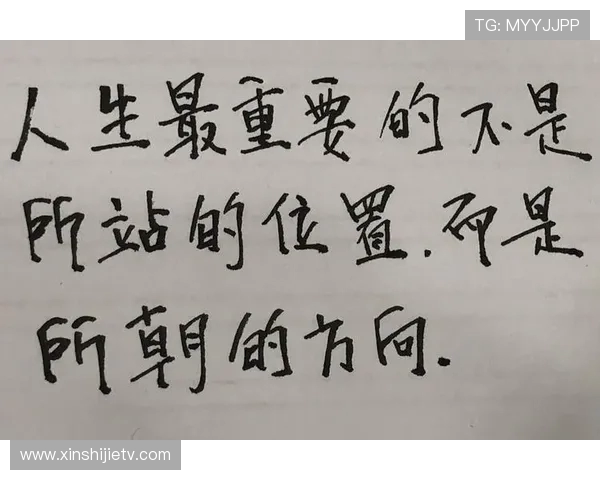 TG: MYYJJPP
人生最重要的不是
所站的位置.而是
所朝的方向.
www.xinshijietv.com